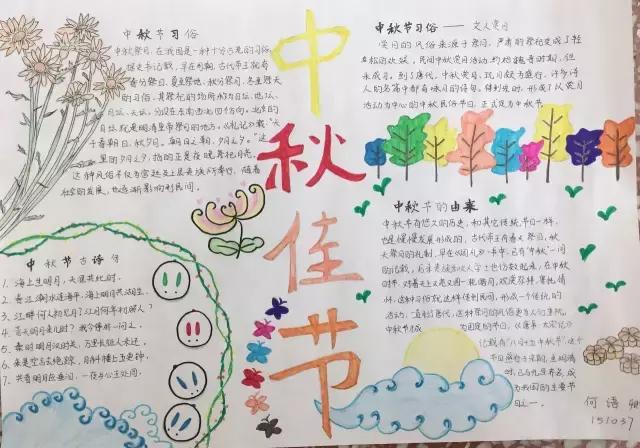 中秋佳节
中秋节习俗
中秋祭月,在我国是一种十分古老的习俗。
据史书记载,早在周朝,古代帝王就有
春分祭日、夏至祭地、秋分祭月、冬至祭天
的习俗,其祭祀的场所称为日坛、地坛、
月坛、天坛。分设在东南西北四个方向。北京的
月坛就是明清皇帝祭月的地方。《礼记》载:"天
子春朝日,秋夕月。朝日以朝,夕月以夕。"这
里的夕月之夕,指的正是夜晚祭祀月亮。
这种风俗不仅为宫廷及上层贵族所奉行,随着
社会的发展,也逐渐影响到民间。
中秋节习俗——文人赏月
赏月的风俗来源于祭月,严肃的祭祀变成了轻
松的欢娱。民间中秋赏月活动约始魏晋时期,但
未成习。到了唐代,中秋赏月、玩月颇为盛行,许多诗
人的名篇中都有咏月的诗句。
活动为中心的中秋民俗节日,正式定为中秋节。
中秋节的由来
中秋节有悠久的历史,和其它传统节日一样,
也是慢慢发展形成的,古代帝王有春天祭日,秋
天祭月的礼制,早在《周礼》一书中,已有"中秋"一词
的记载。后来贵族和文人学士也仿效起来,在中秋
时节,对着天上又亮又圆一轮皓月,观赏祭拜,寄托情
怀,这种习俗就这样传到民间,形成一个传统的
活动,一直到了唐代,这种祭月的风俗更为人们重视,
中秋节才成
为固定的节日,《唐书·太宗记》
记载有"八月十五中秋节",这个
节日盛行于宋朝,至明清
时,已与元旦齐名,成
为我国的主要节
日之一。
中秋节古诗句
1、海上生明月,天涯共此时。
2、春江潮水连海平,海上明月共潮生。
3、江畔何人初见月?江月何年初照人?
4、青天明月来几时?我今停杯一问之。
5、秦时明月汉时关,万里长征人未还。
6、来是空言去绝踪,月斜楼上五更钟。
7、共看明月应垂泪,一夜乡心五处同。
151037